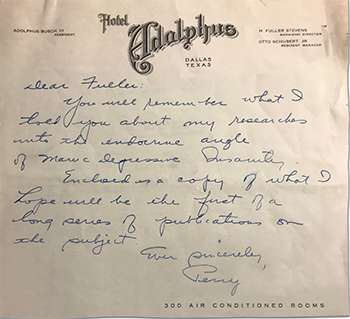 Hotel
Adolphus
DALLAS
TEXAS
ADOLPHUS BUSCH III
PRESIDENT
H. FULLER STEVENS
MANAGING DIRECTOR
OTTO SCHUBERT, JR.
RESIDENT MANAGER
Dear Fuller:
You will remember what I
told you about my researches
into the endocrine angle
of Manic depressive Insanity.
Enclosed is a copy of what I
hope will be the first of a
long series of publications on
the subject
Ever sincerely,
Perry
300 AIR CONDITIONED ROOMS